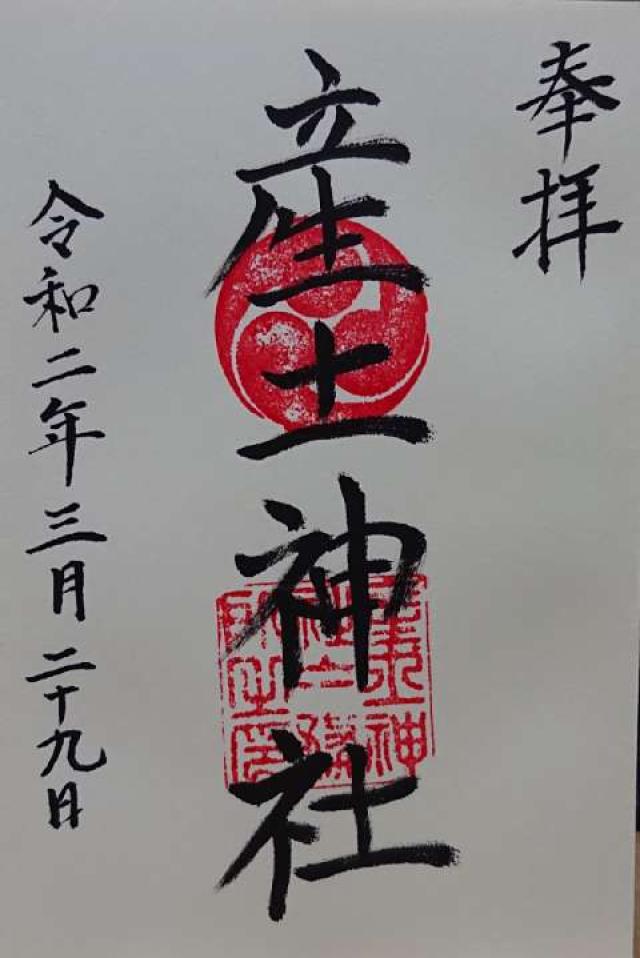 奉拝
産土神社
令和二年三月二十九日